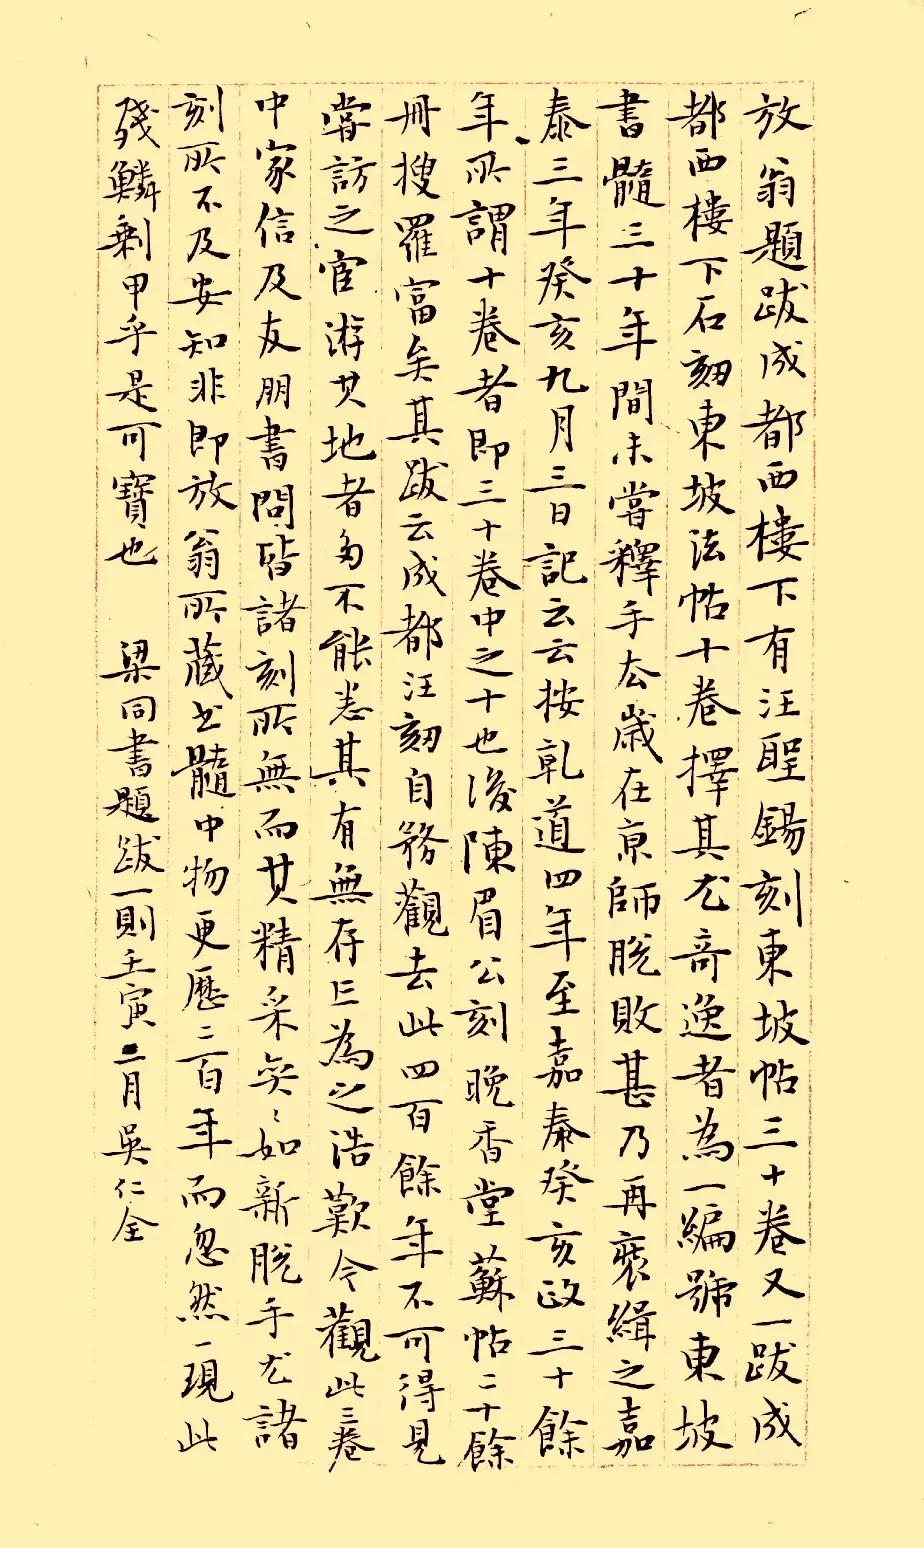 放翁題跋成都西樓下有汪聖錫刻東坡帖三十卷又一跋成
都西樓下石刻東坡法帖十卷擇其尤奇逸者為一編號東坡
書髓三十年間未嘗釋手去歲在京師脫敗甚乃再褱緝之嘉
泰三年癸亥九月三日記云云按乾道四年至嘉泰癸亥政三十餘
年所謂十卷者即三十卷中之十也後陳眉公刻晚香堂蘇帖二十餘
冊搜羅富矣其跋云成都汪刻自務觀去此四百餘年不可得見
嘗訪之宦游其地者多不能悉其有無存亡為之浩歎今觀此三卷
中家信及友朋書問皆諸刻所無而其精采奕〻如新脫手尤諸
刻所不及安知非即放翁所藏書髓中物更歷二百年而忽然一現此
殘鱗剩甲乎是可寶也 梁同書題跋一則壬寅二月吳仁全